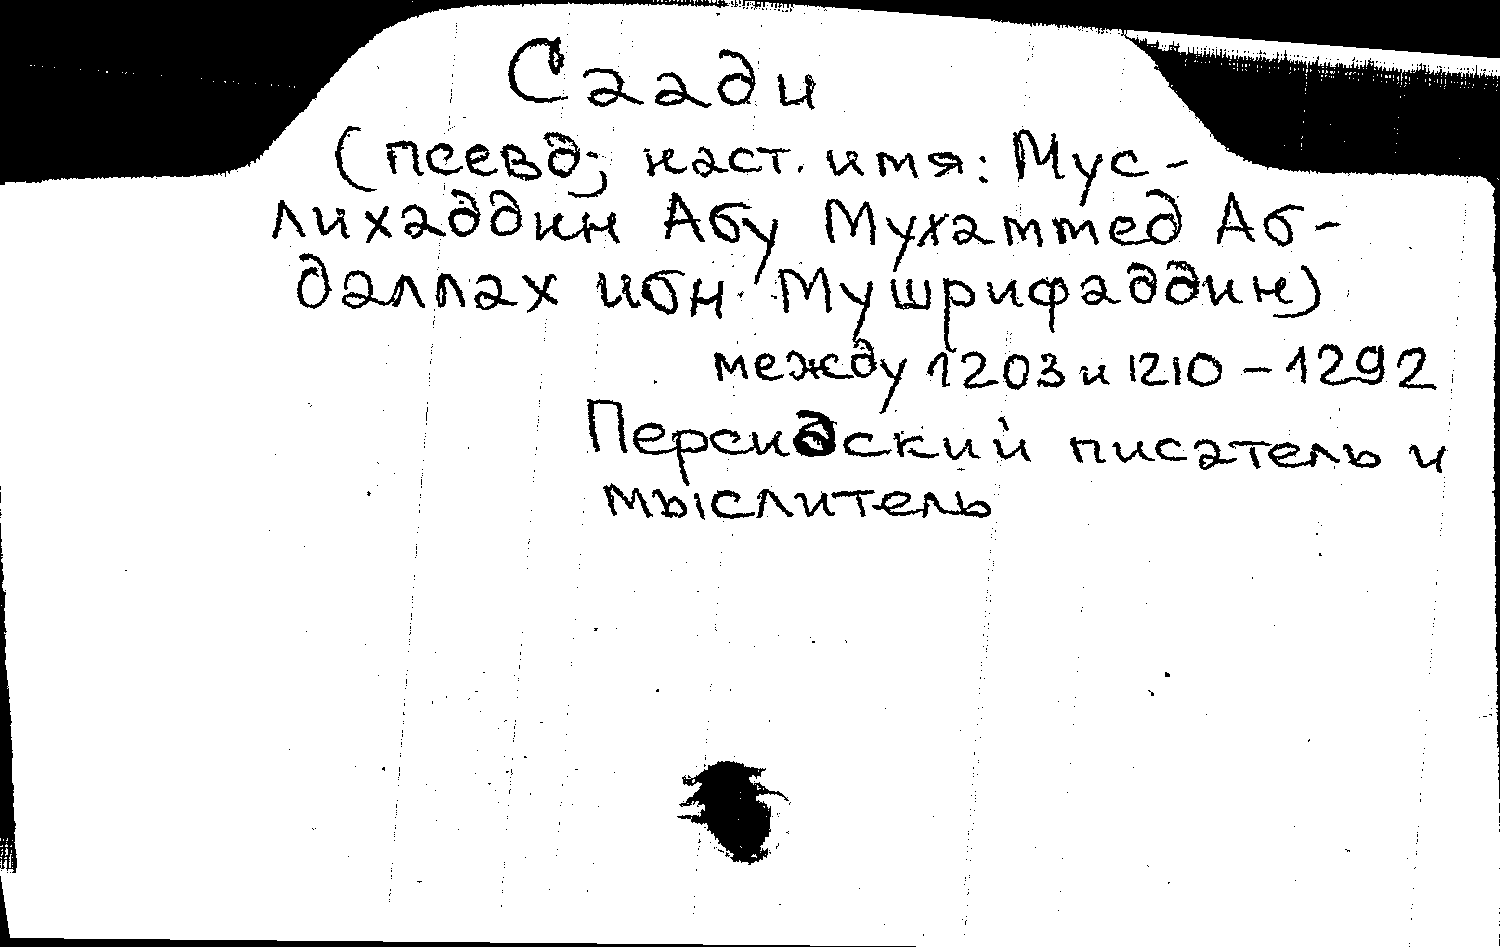 Саади
(псевд; наст. имя: Мус-
лихаддин Абу Мухаммед Аб-
даллах ибн Мушрифаддин)
между 1203 и 1210 – 1292
Персидский писатель и
мыслитель